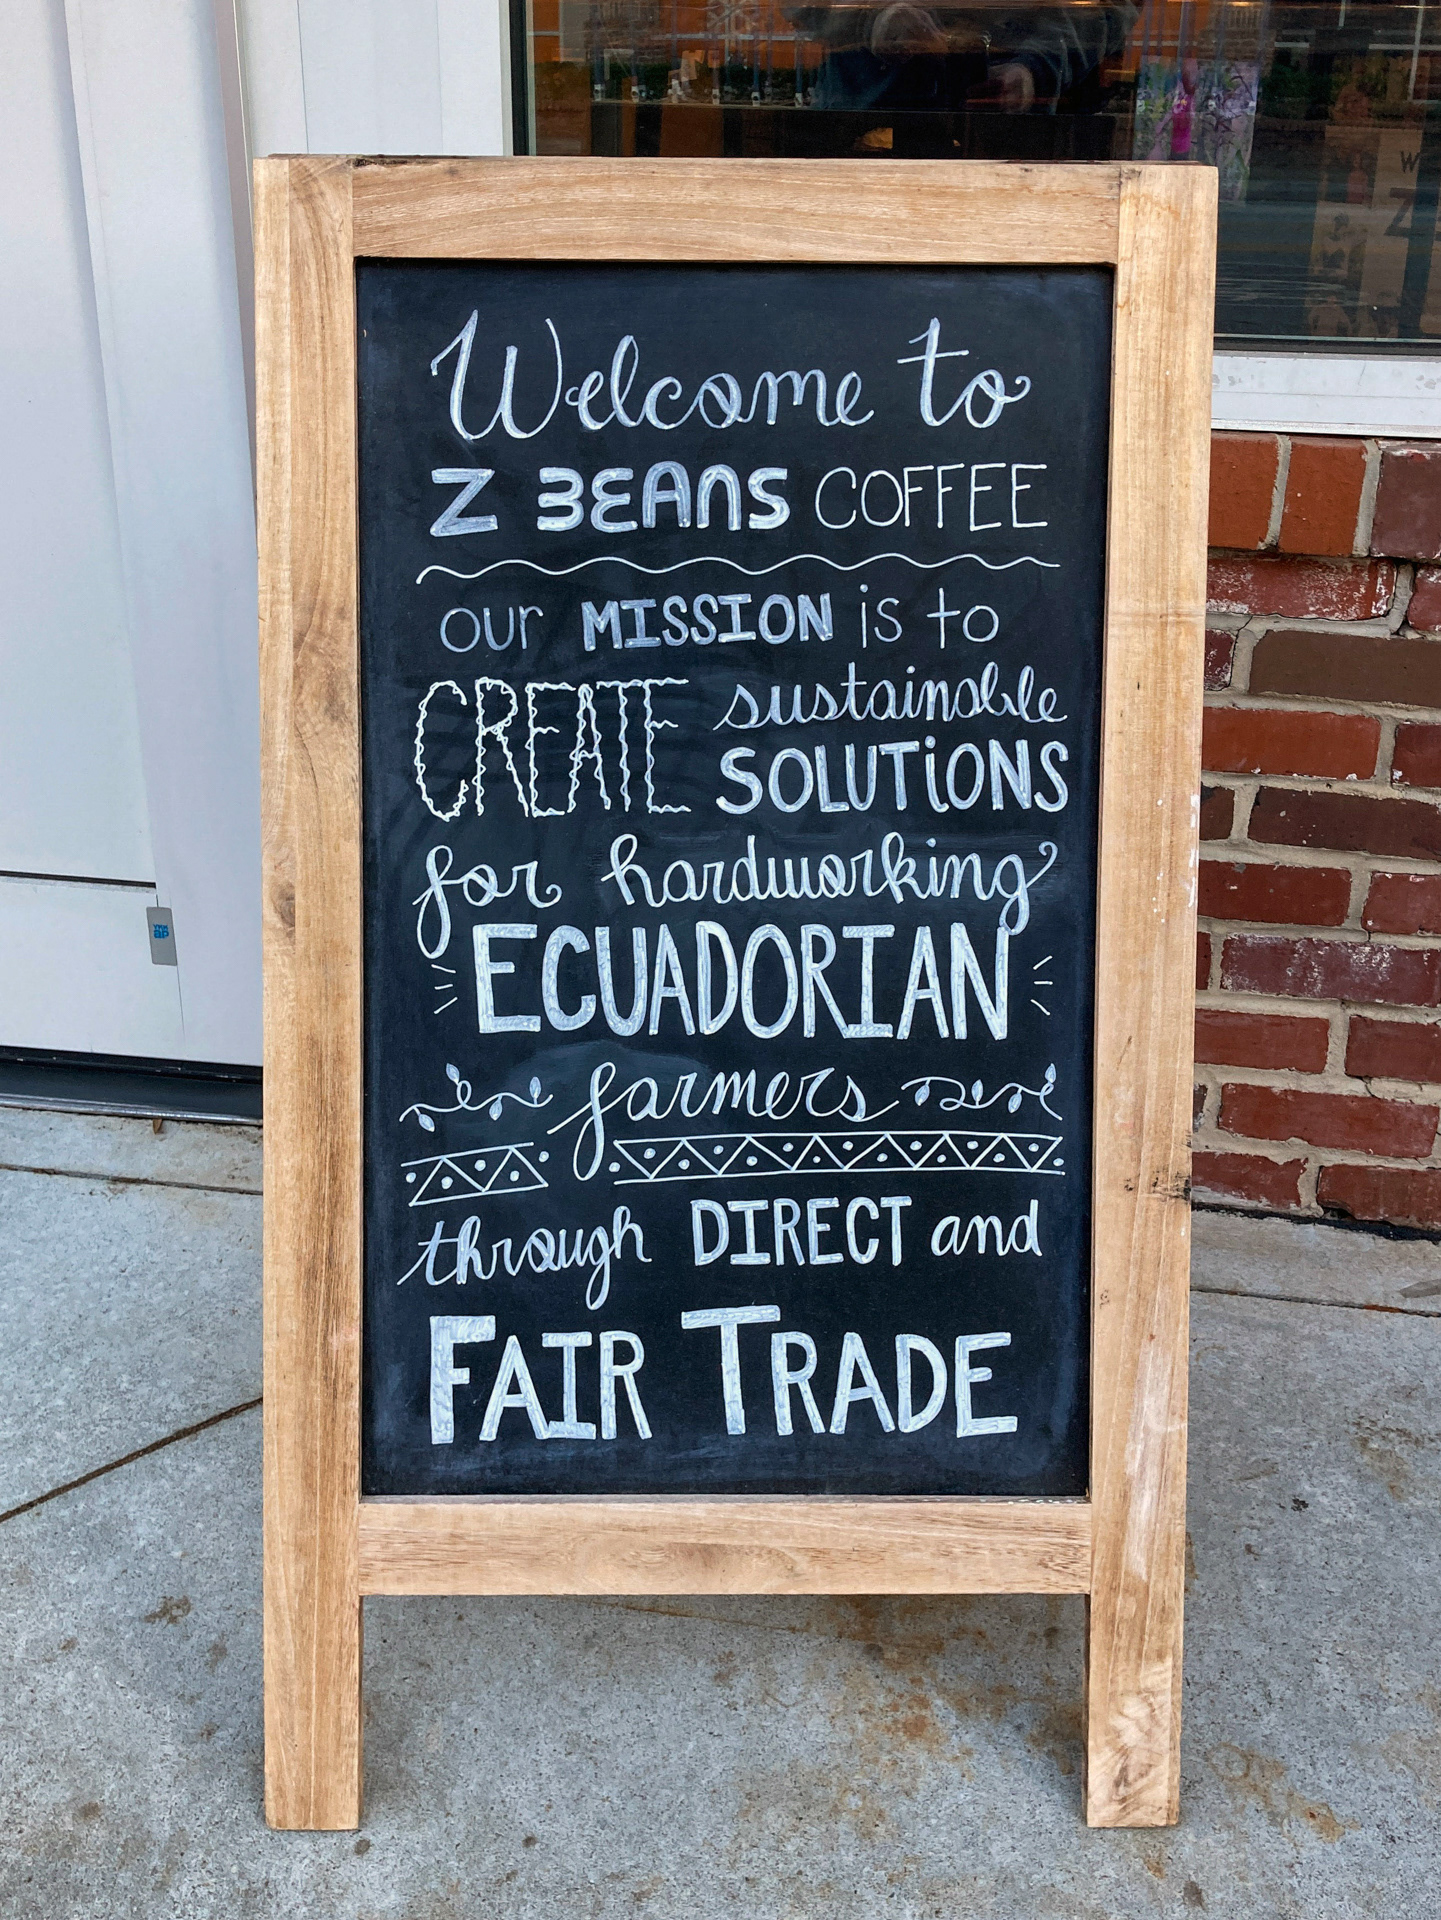 Welcome to
Z BEANS COFFEE
our MISSION is to
CREATE sustainable
SOLUTiONS
for hardworking
ECUADORIAN
farmers
through DIRECT and
FAIR TRADE
YKK
ap